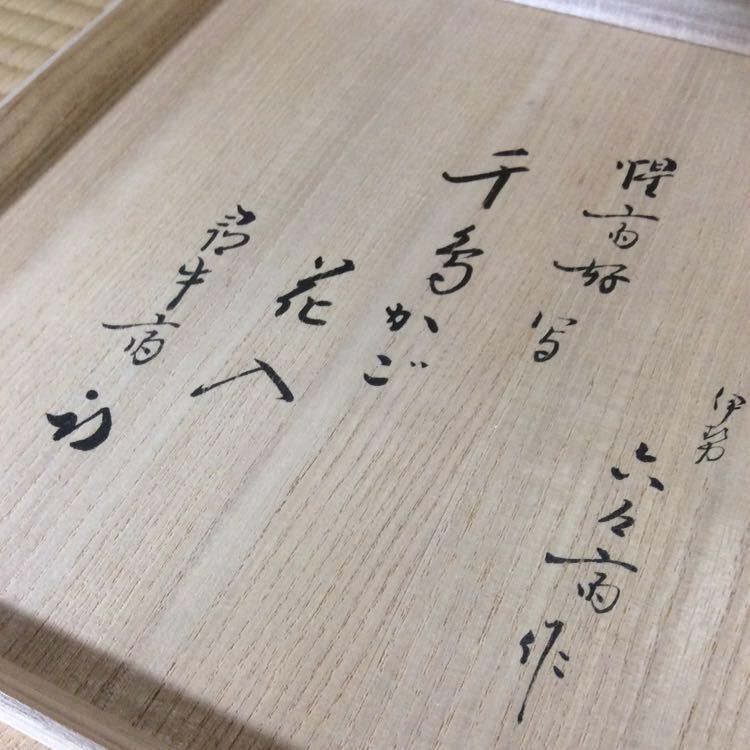 伊勢
六々斎作
惺斎好写
千鳥かご
花入
尋牛斎